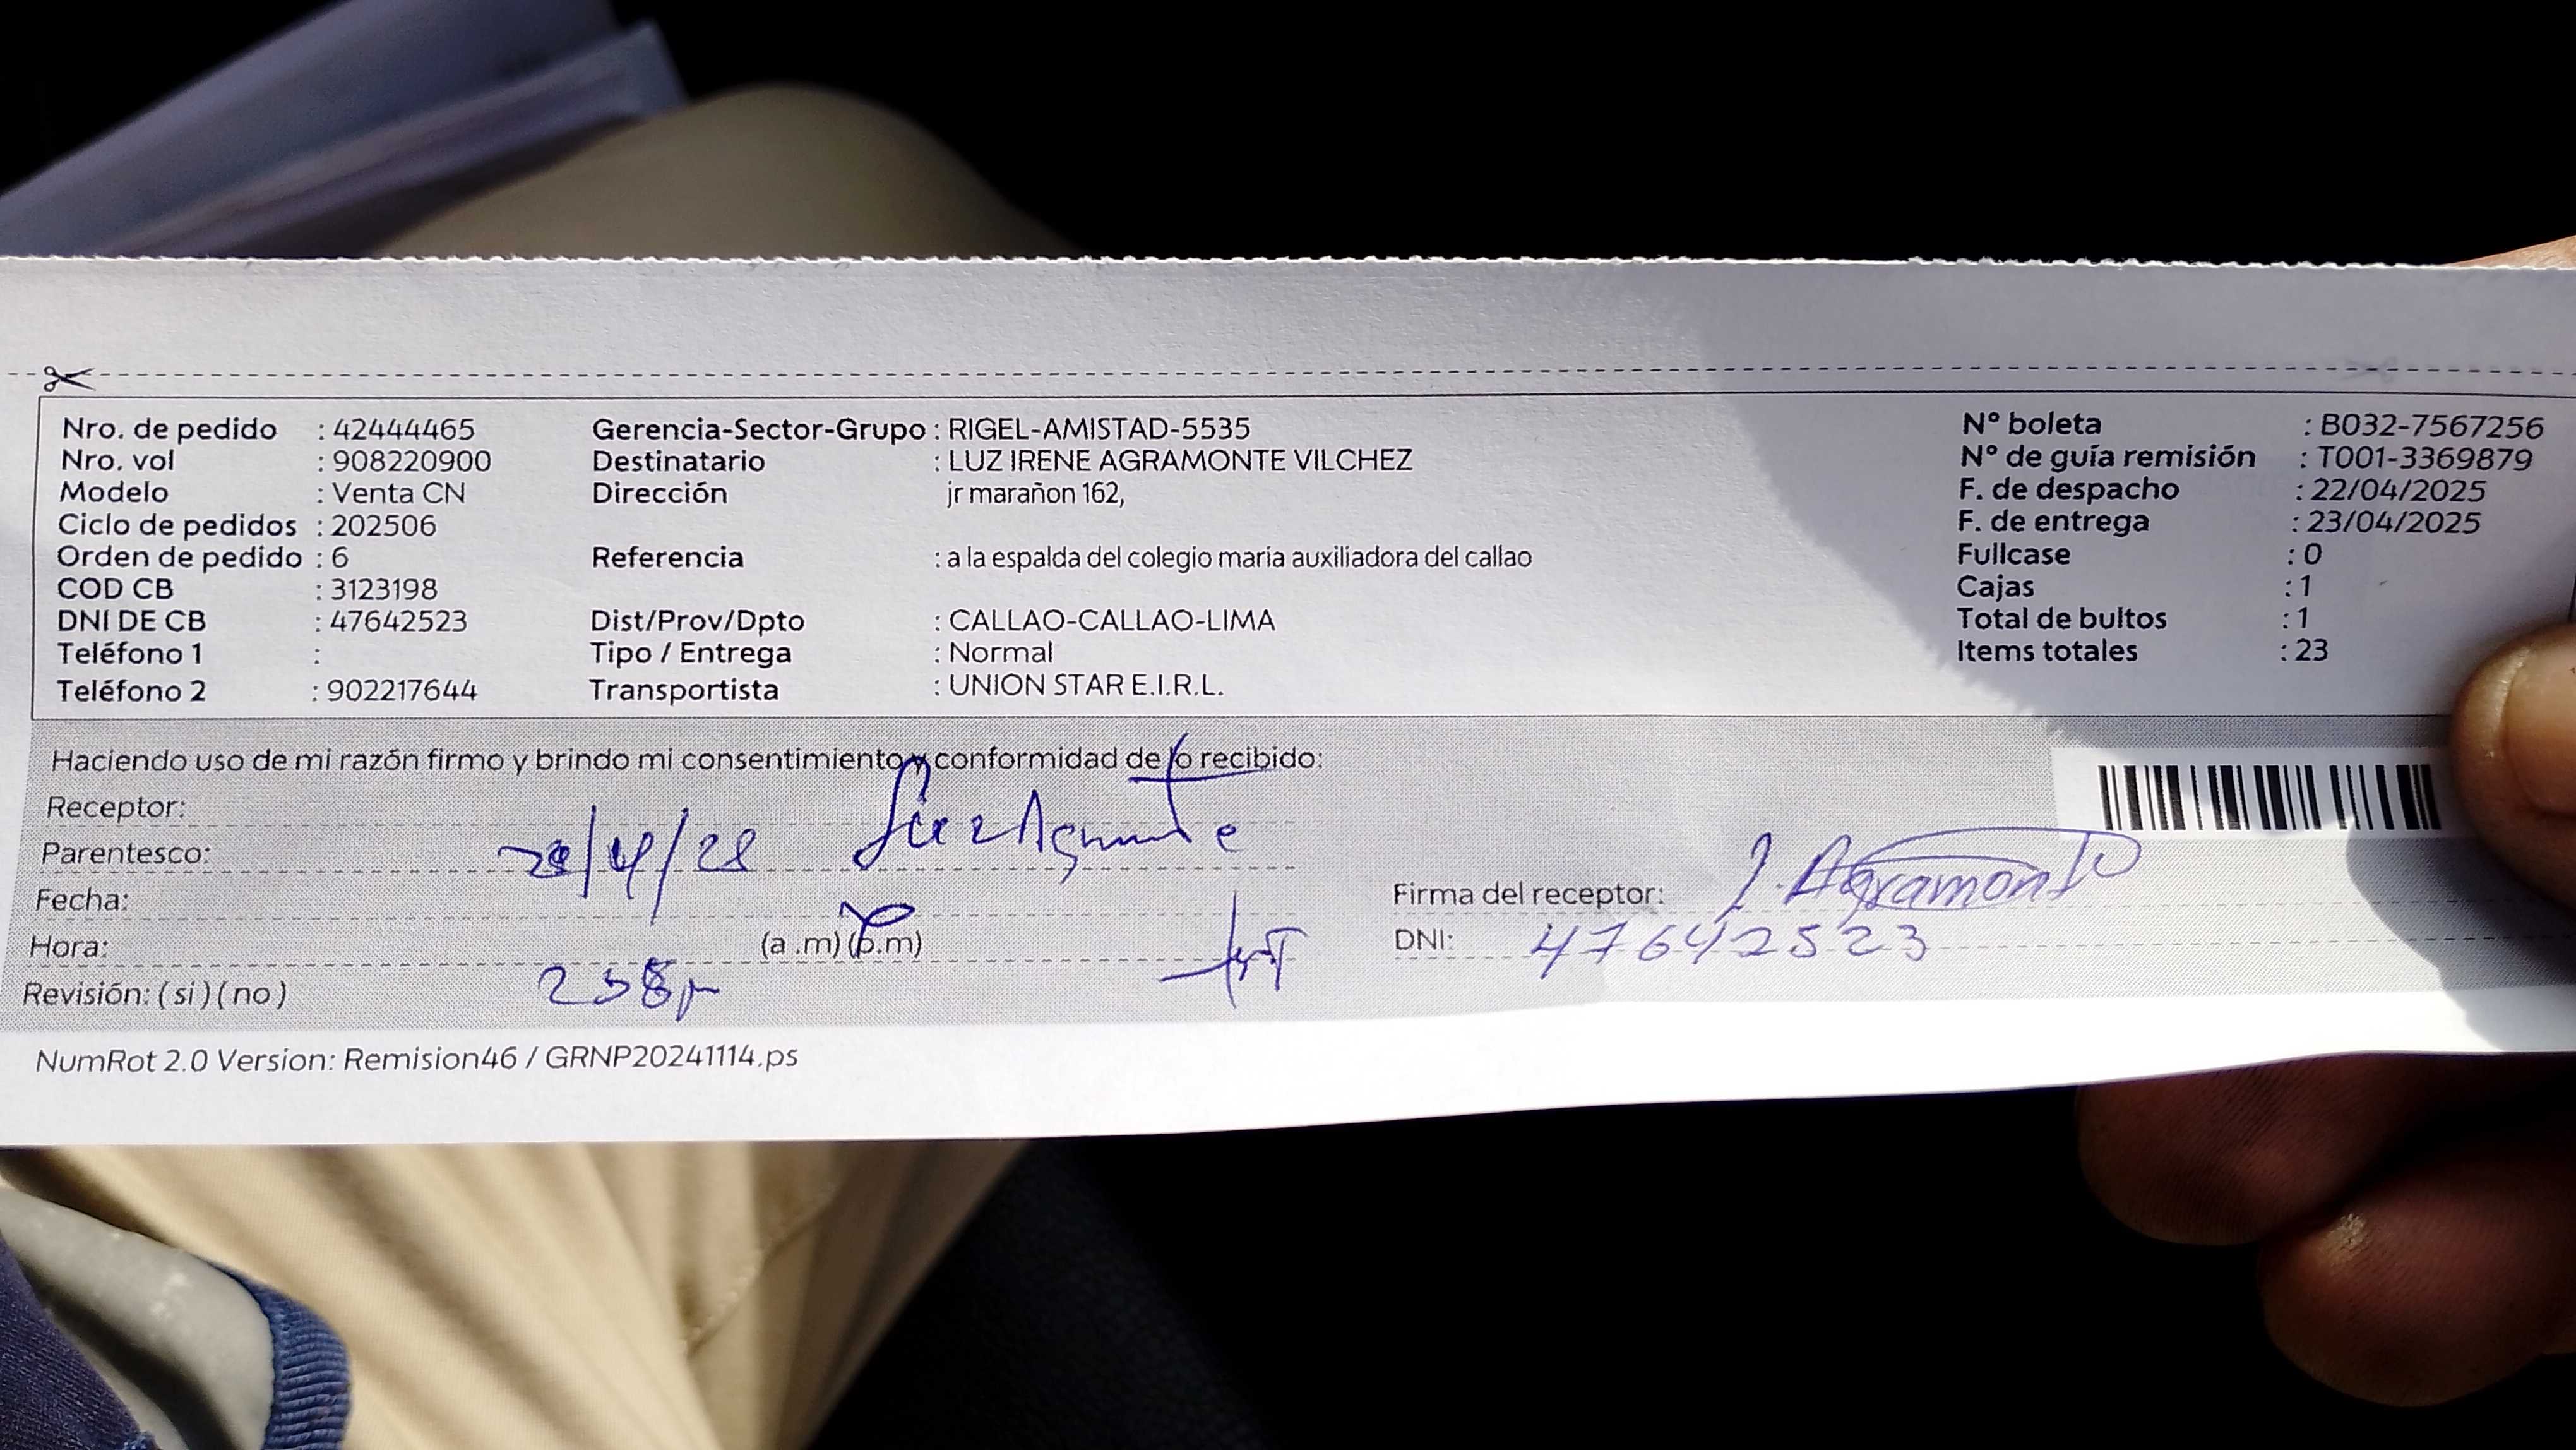 Nro. de pedido : 42444465 Gerencia-Sector-Grupo : RIGEL-AMISTAD-5535 N° boleta : B032-7567256
Nro. vol : 908220900 Destinatario : LUZ IRENE AGRAMONTE VILCHEZ N° de guía remisión : T001-3369879
Modelo : Venta CN Dirección jr marañon 162, F. de despacho : 22/04/2025
Ciclo de pedidos : 202506 F. de entrega : 23/04/2025
Orden de pedido : 6 Referencia : a la espalda del colegio maria auxiliadora del callao Fullcase : 0
COD CB : 3123198 Cajas : 1
DNI DE CB : 47642523 Dist/Prov/Dpto : CALLAO-CALLAO-LIMA Total de bultos : 1
Teléfono 1 : Tipo / Entrega : Normal Items totales : 23
Teléfono 2 : 902217644 Transportista : UNION STAR E.I.R.L.
Haciendo uso de mi razón firmo y brindo mi consentimiento y conformidad de lo recibido:
Receptor:
Parentesco:
Fecha: Firma del receptor: Agramonte
Hora: (a .m) (p.m) DNI: 47642523
Revisión: ( si ) ( no )
NumRot 2.0 Version: Remision46 / GRNP20241114.ps